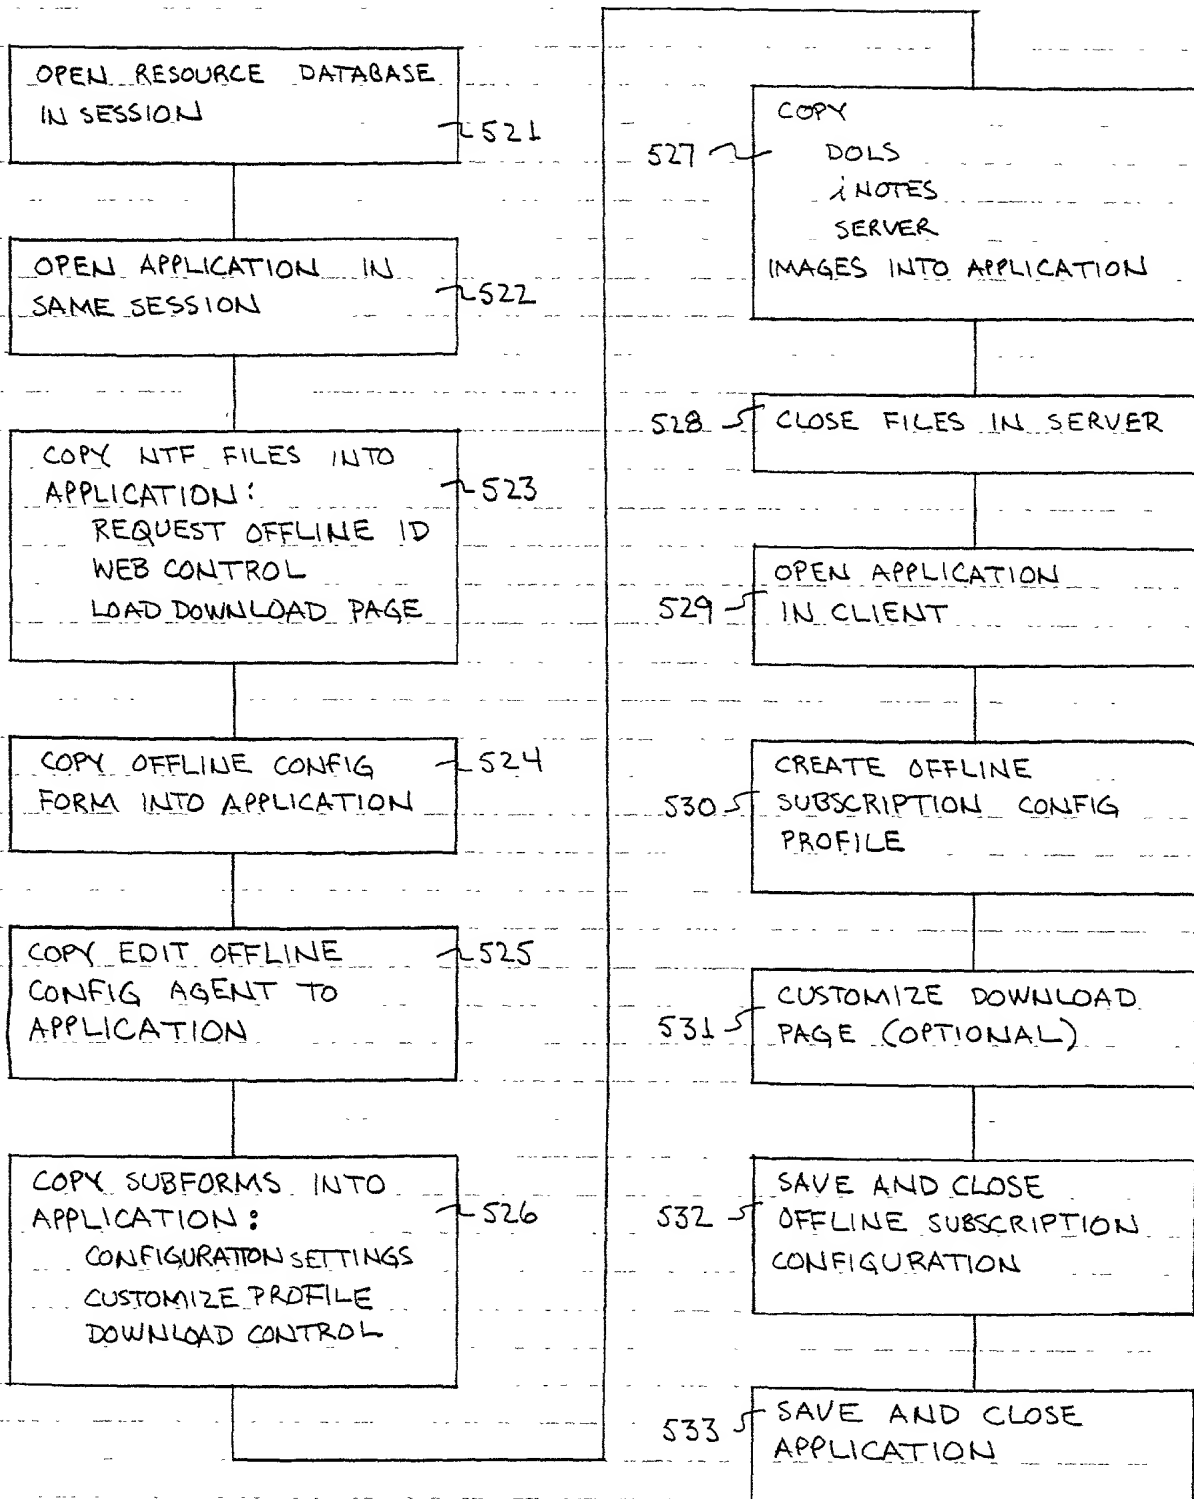 OPEN RESOURCE DATABASE
IN SESSION
521
OPEN APPLICATION IN
SAME SESSION
522
COPY NTF FILES INTO
APPLICATION:
523
REQUEST OFFLINE ID
WEB CONTROL
LOAD DOWNLOAD PAGE
COPY OFFLINE CONFIG
524
FORM INTO APPLICATION
COPY EDIT OFFLINE
525
CONFIG AGENT TO
APPLICATION
COPY SUBFORMS INTO
APPLICATION:
526
CONFIGURATION SETTINGS
CUSTOMIZE PROFILE
DOWNLOAD CONTROL
COPY
527
DOLS
iNOTES
SERVER
IMAGES INTO APPLICATION
528
CLOSE FILES IN SERVER
OPEN APPLICATION
529
IN CLIENT
CREATE OFFLINE
530
SUBSCRIPTION CONFIG
PROFILE
CUSTOMIZE DOWNLOAD
531
PAGE (OPTIONAL)
SAVE AND CLOSE
532
OFFLINE SUBSCRIPTION
CONFIGURATION
533
SAVE AND CLOSE
APPLICATION